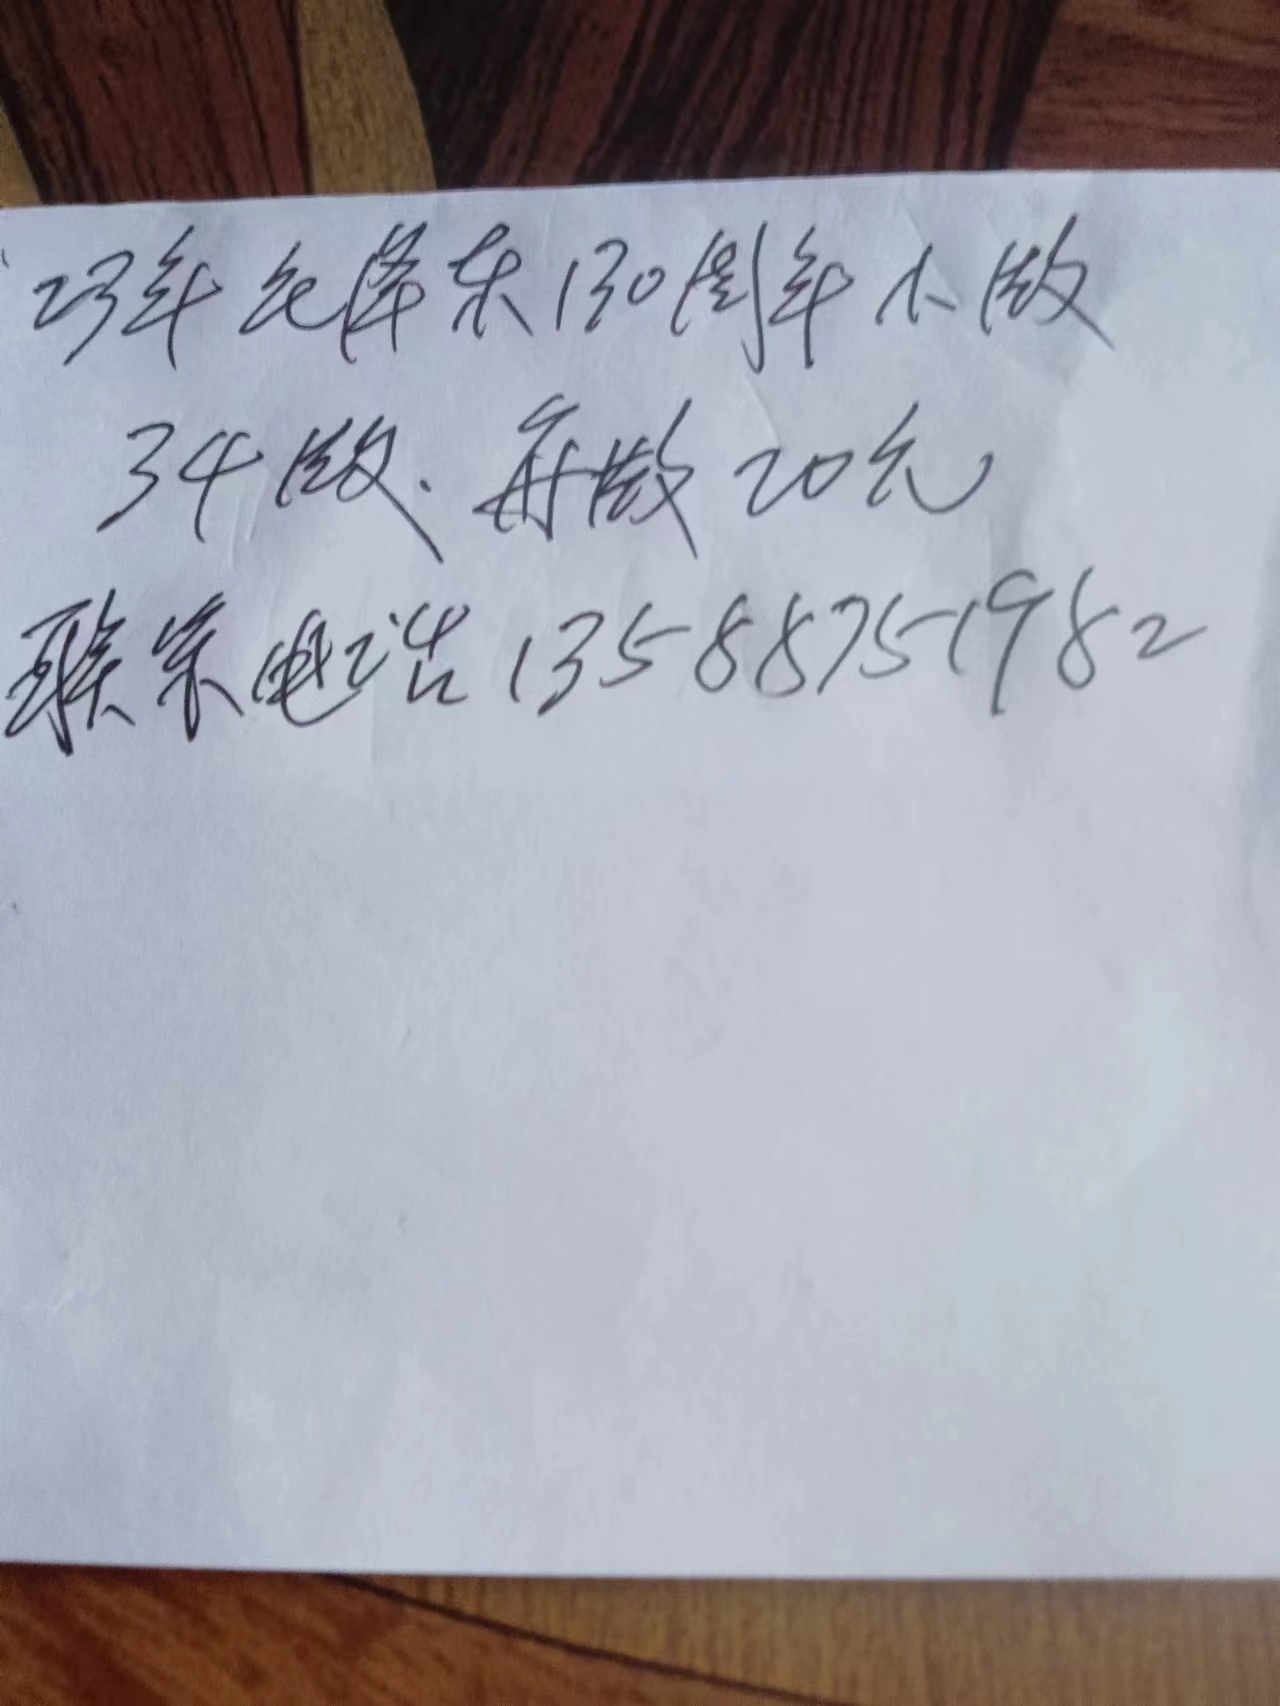 23年毛泽东130周年小版
34版.每版20元
联系电话13588751982